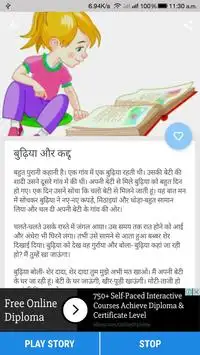 6.94K/s 79% 11:30 a.m.
बुढ़िया और कद्दू
बहुत पुरानी कहानी है। एक गांव में एक बुढ़िया रहती थी। उसकी बेटी की
शादी उसने दूसरे गांव में की थी। अपनी बेटी से मिले बुढ़िया को बहुत दिन
हो गए। एक दिन उसने सोचा कि चलो बेटी से मिलने जाती हूं। यह बात मन
में सोचकर बुढ़िया ने नए-नए कपड़े, मिठाइयां और थोड़ा-बहुत सामान
लिया और चल दी अपनी बेटी के गांव की ओर।
चलते-चलते उसके रास्ते में जंगल आया। उस समय तक रात होने को आई
और अंधेरा भी घिरने लगा। तभी उसे सामने से आता हुआ बब्बर शेर
दिखाई दिया। बुढ़िया को देख वह गुर्राया और बोला- बुढ़िया कहां जा रही
हो? मैं तुम्हें खा जाऊंगा।
बुढ़िया बोली- शेर दादा, शेर दादा तुम मुझे अभी मत खाओ। मैं अपनी बेटी
के घर जा रही हूं। बेटी के घर जाऊंगी, खीर-पूड़ी खाऊंगी। मोटी-ताजी हो
Free Online
Diploma
750+ Self-Paced Interactive
Courses Achieve Diploma &
Certificate Level
PLAY STORY
STOP